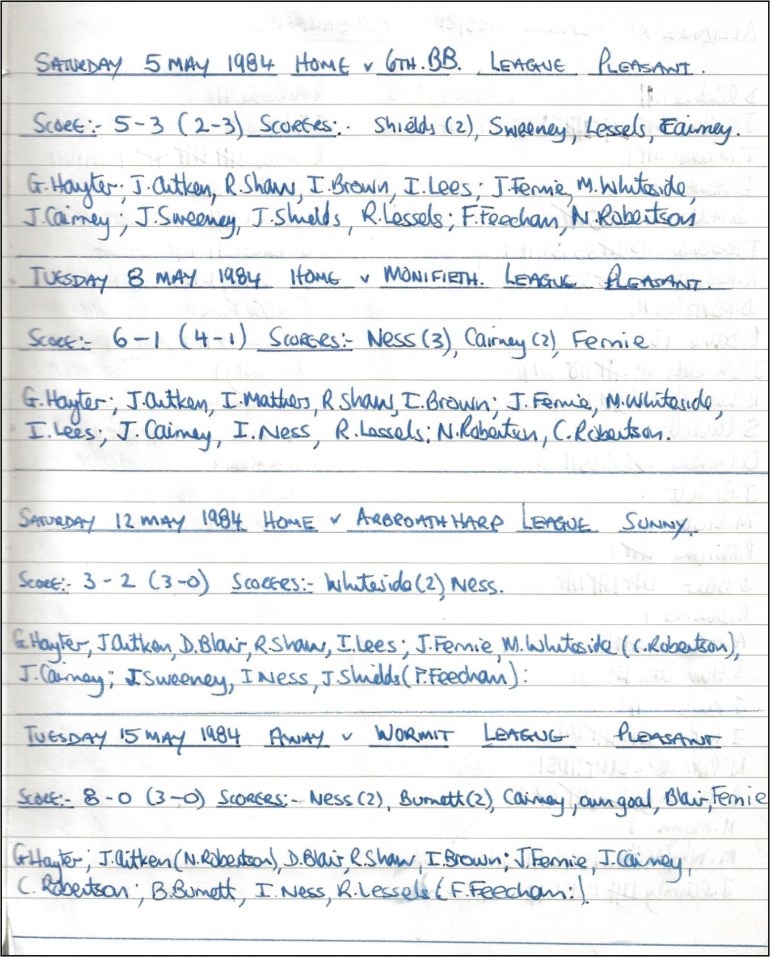 SATURDAY 5 MAY 1984 HOME v 6TH. BB. LEAGUE PLEASANT.
SCORE:- 5-3 (2-3) SCORERS:- Shields (2), Sweeney, Lessels, Cairney.
G.Hayter; J.Aitken, R.Shaw, I.Brown, I.Lees; J.Fernie, M.Whiteside,
J.Cairney; J.Sweeney, J.Shields, R.Lessels; F.Feechan, N.Robertson
TUESDAY 8 MAY 1984 HOME v MONIFIETH. LEAGUE PLEASANT.
SCORE:- 6-1 (4-1) SCORERS:- Ness (3), Cairney (2), Fernie
G.Hayter; J.Aitken, I.Mathers, R Shaw, I.Brown; J.Fernie, M.Whiteside,
I.Lees; J.Cairney, I.Ness, R.Lessels; N.Robertson, C.Robertson.
SATURDAY 12 MAY 1984 HOME v ARBROATH HARP LEAGUE SUNNY.
SCORE:- 3-2 (3-0) SCORERS:- Whiteside (2), Ness.
G.Hayter, J.Aitken, D.Blair, R.Shaw, I.Lees; J.Fernie, M.Whiteside (C.Robertson),
J.Cairney; J.Sweeney, I Ness, J.Shields (F.Feechan):
TUESDAY 15 MAY 1984 AWAY v WORMIT LEAGUE PLEASANT
SCORE:- 8-0 (3-0) SCORERS:- Ness (2), Burnett (2), Cairney, own goal, Blair, Fernie
G.Hayter; J.Aitken (N.Robertson), D.Blair, R.Shaw, I.Brown; J.Fernie, J.Cairney,
C.Robertson; B.Burnett, I.Ness, R.Lessels (F.Feechan:).